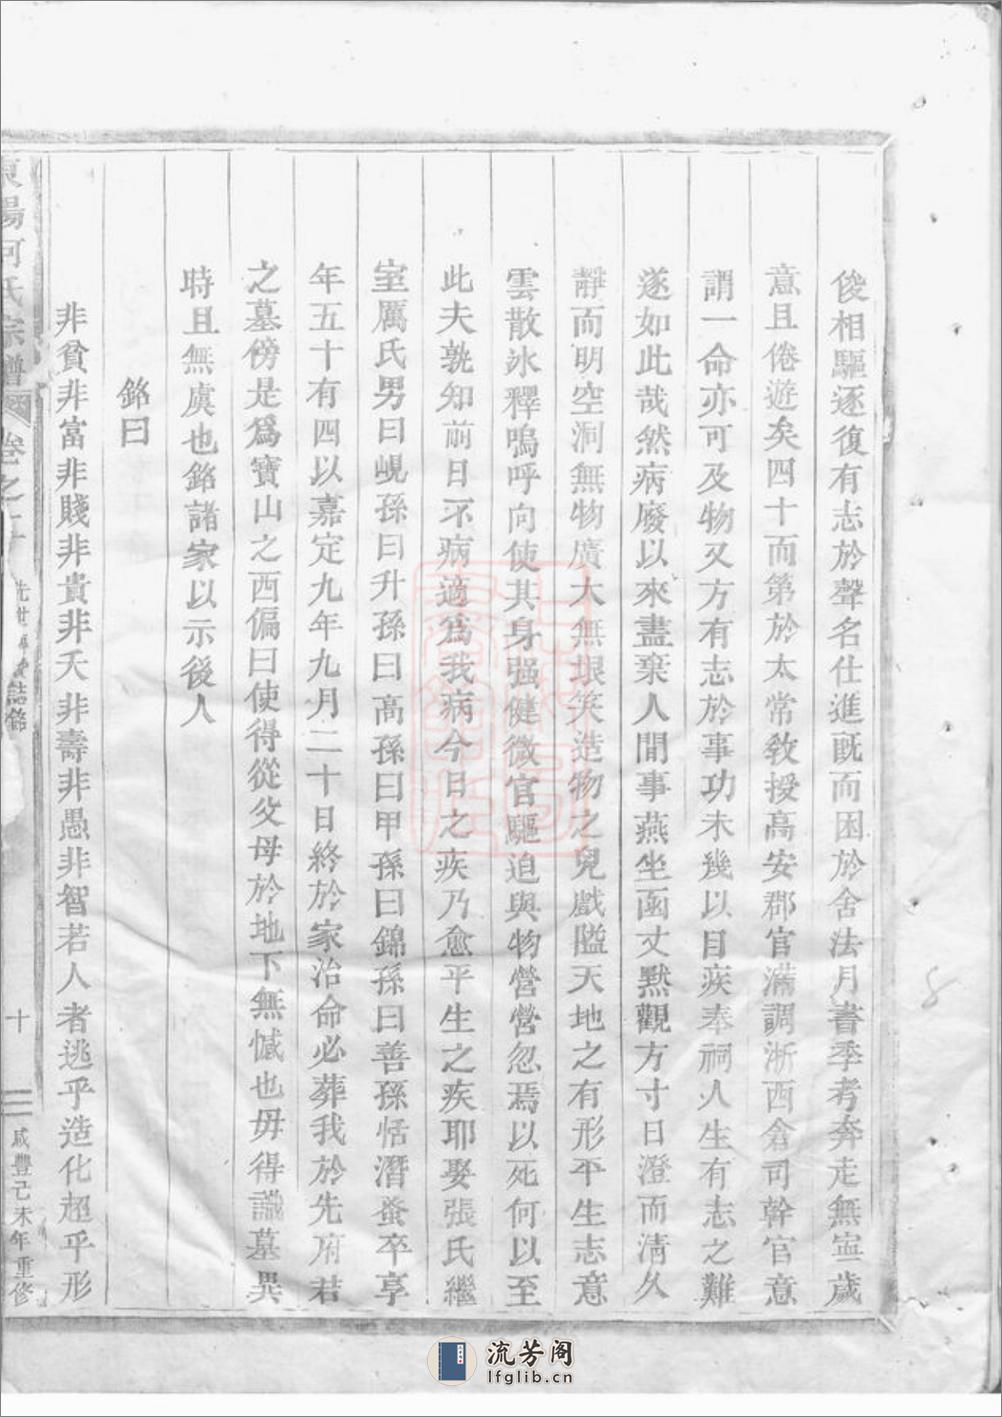 俊相驅逐復有志於聲名仕進既而困於舍法月書季考奔走無寧歲
意且倦遊矣四十而第於太常敎授高安郡官滿調浙西倉司幹官意
謂一命亦可及物又方有志於事功未幾以目疾奉祠人生有志之難
遂如此哉然病廢以來盡棄人間事燕坐函丈默觀方寸日澄而淸久
靜而明空洞無物廣大無垠笑造物之兒戲隘天地之有形平生志意
雲散冰釋嗚呼向使其身强健微官驅迫與物營營忽焉以死何以至
此夫孰知前日不病適爲我病今日之疾乃愈平生之疾耶娶張氏繼
室厲氏男曰峴孫曰升孫曰高孫曰甲孫曰錦孫曰善孫恬潛蚤卒享
年五十有四以嘉定九年九月二十日終於家治命必葬我於先府君
之墓傍是爲寶山之西偏曰使得從父母於地下無憾也毋得識墓異
時且無虞也銘諸家以示後人
銘曰
非貧非富非賤非貴非夭非壽非愚非智若人者逃乎造化超乎形
東陽何氏宗譜 卷之十 誌銘 十 咸豐己未年重修
8
流芳阁
lfglib.cn